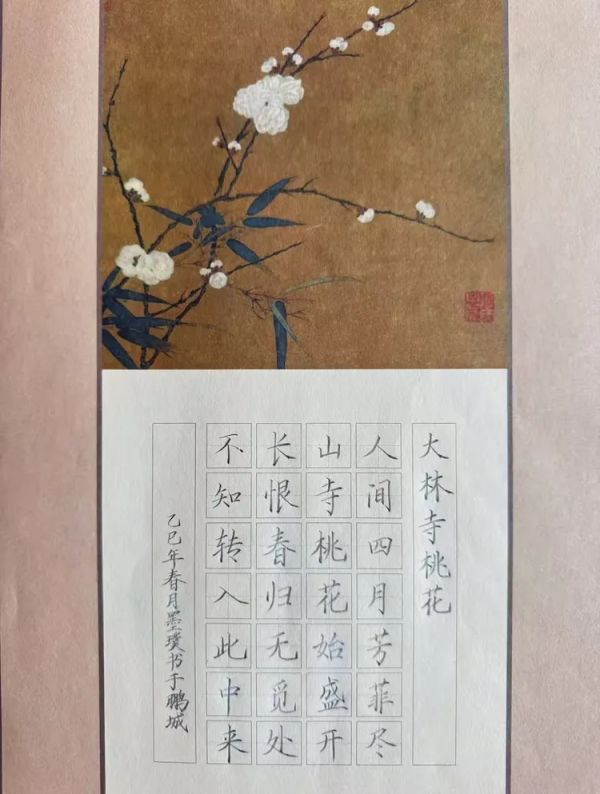 大林寺桃花
人间四月芳菲尽
山寺桃花始盛开
长恨春归无觅处
不知转入此中来
乙巳年春月墨璞书于鹏城